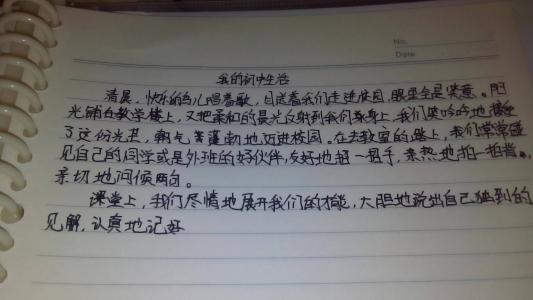 No.
Date
我的初中生活
清晨,快乐的鸟儿唱着歌,目送着我们走进校园,眼里全是笑意。阳
光铺在教学楼上,又把柔和的晨光反射到我们身上,我们笑吟吟地接受
了这份光芒,朝气蓬勃地迈进校园。在去教室的路上,我们常常碰
见自己的同学或是外班的好伙伴,友好地招一招手,亲热地拍一拍肩,
亲切地问候两句。
课堂上,我们尽情地展开我们的才能,大胆地说出自己独到的
见解,认真地记好